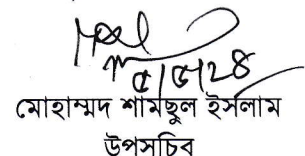 ৫/৫/২৪
মোহাম্মদ শামছুল ইসলাম
উপসচিব